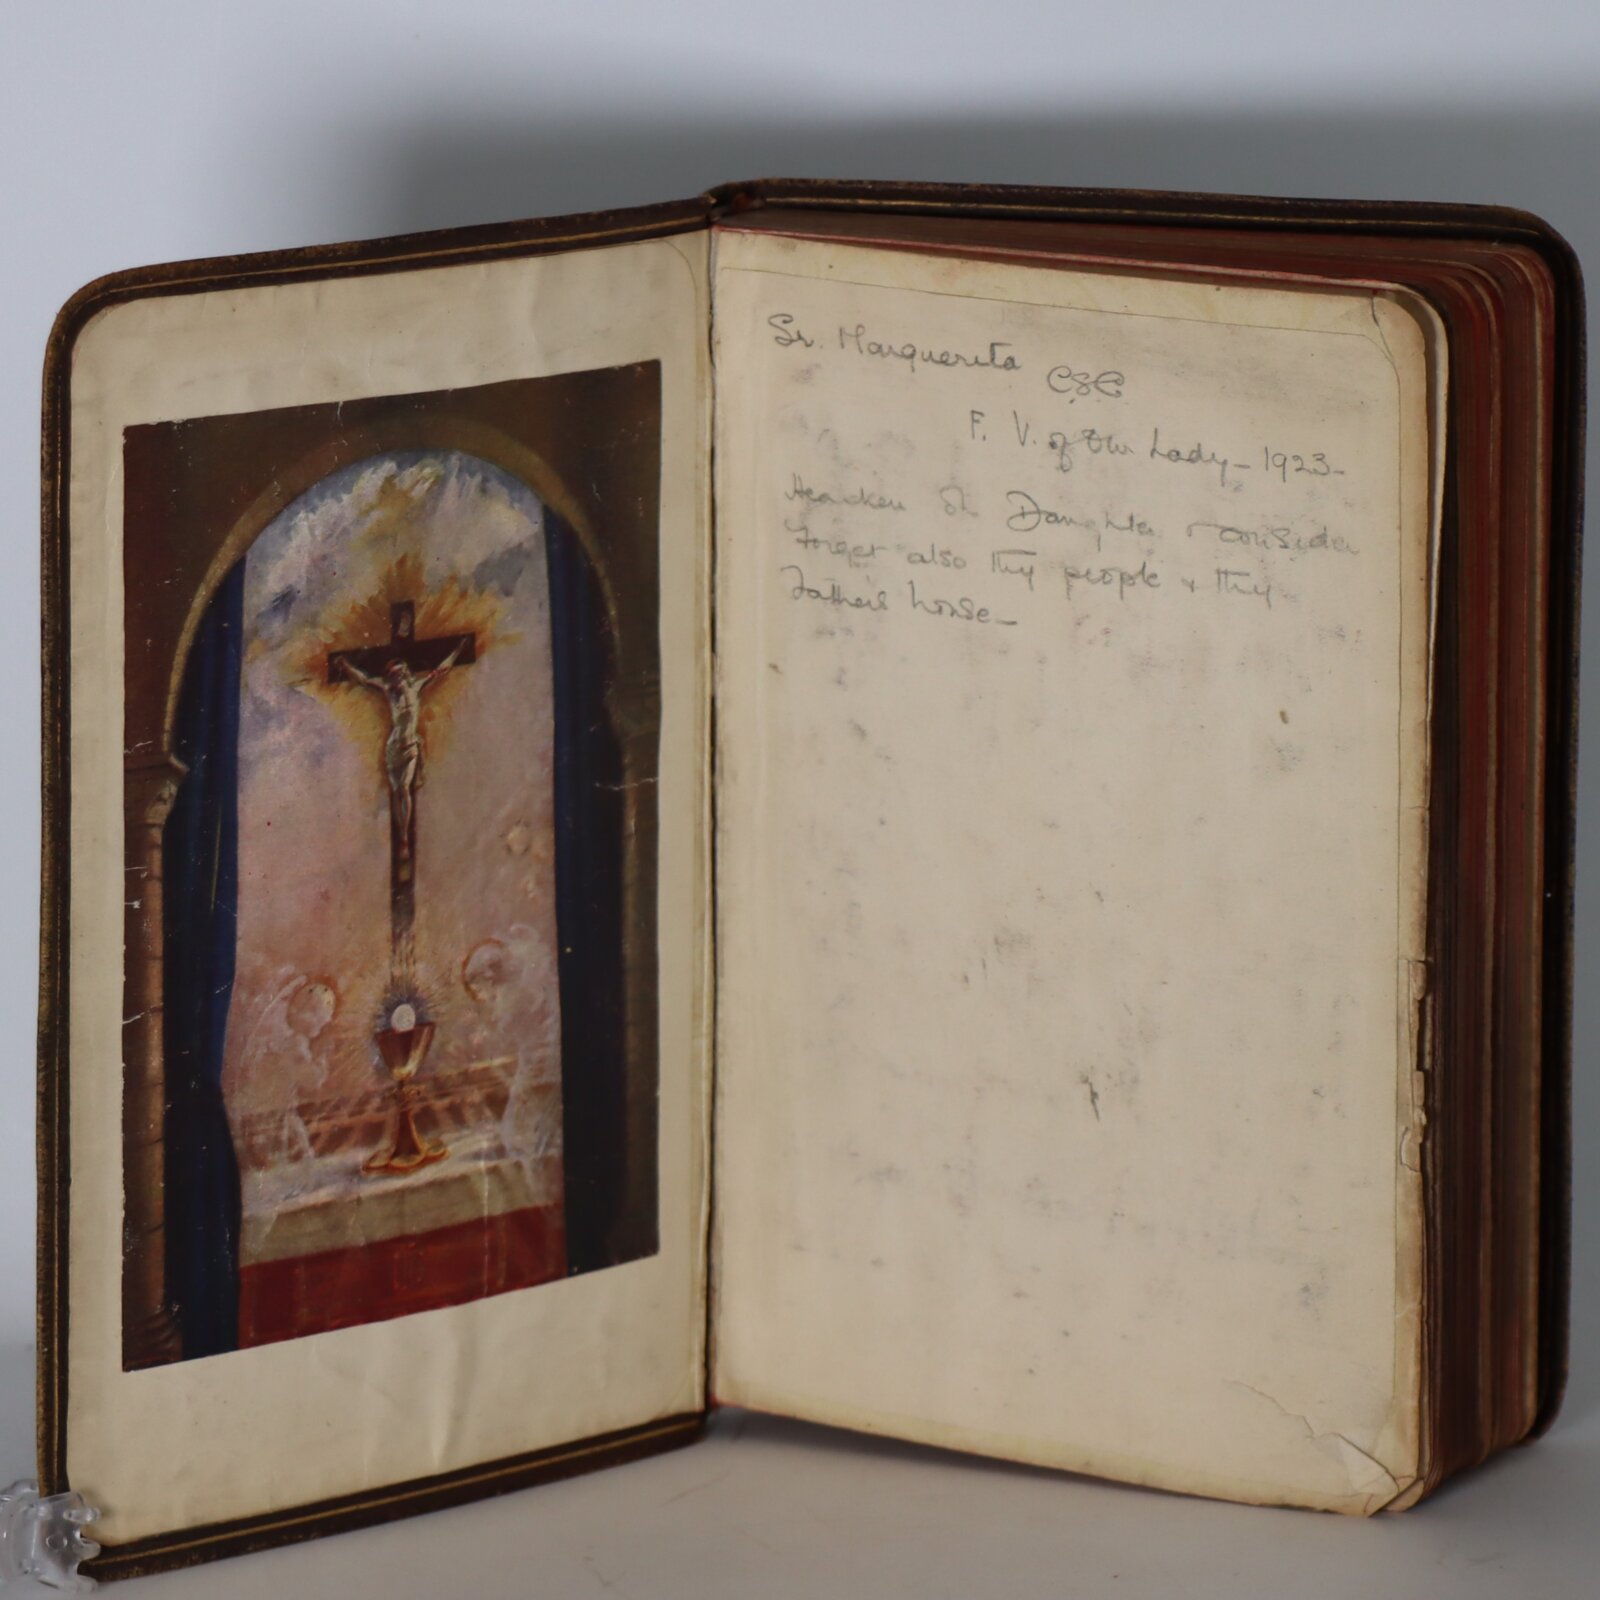 Sr. Marguerita
CSC
F. V. of Our Lady - 1923 -
Hearken Oh Daughter & consider
Forget also thy people & thy
Father's house -